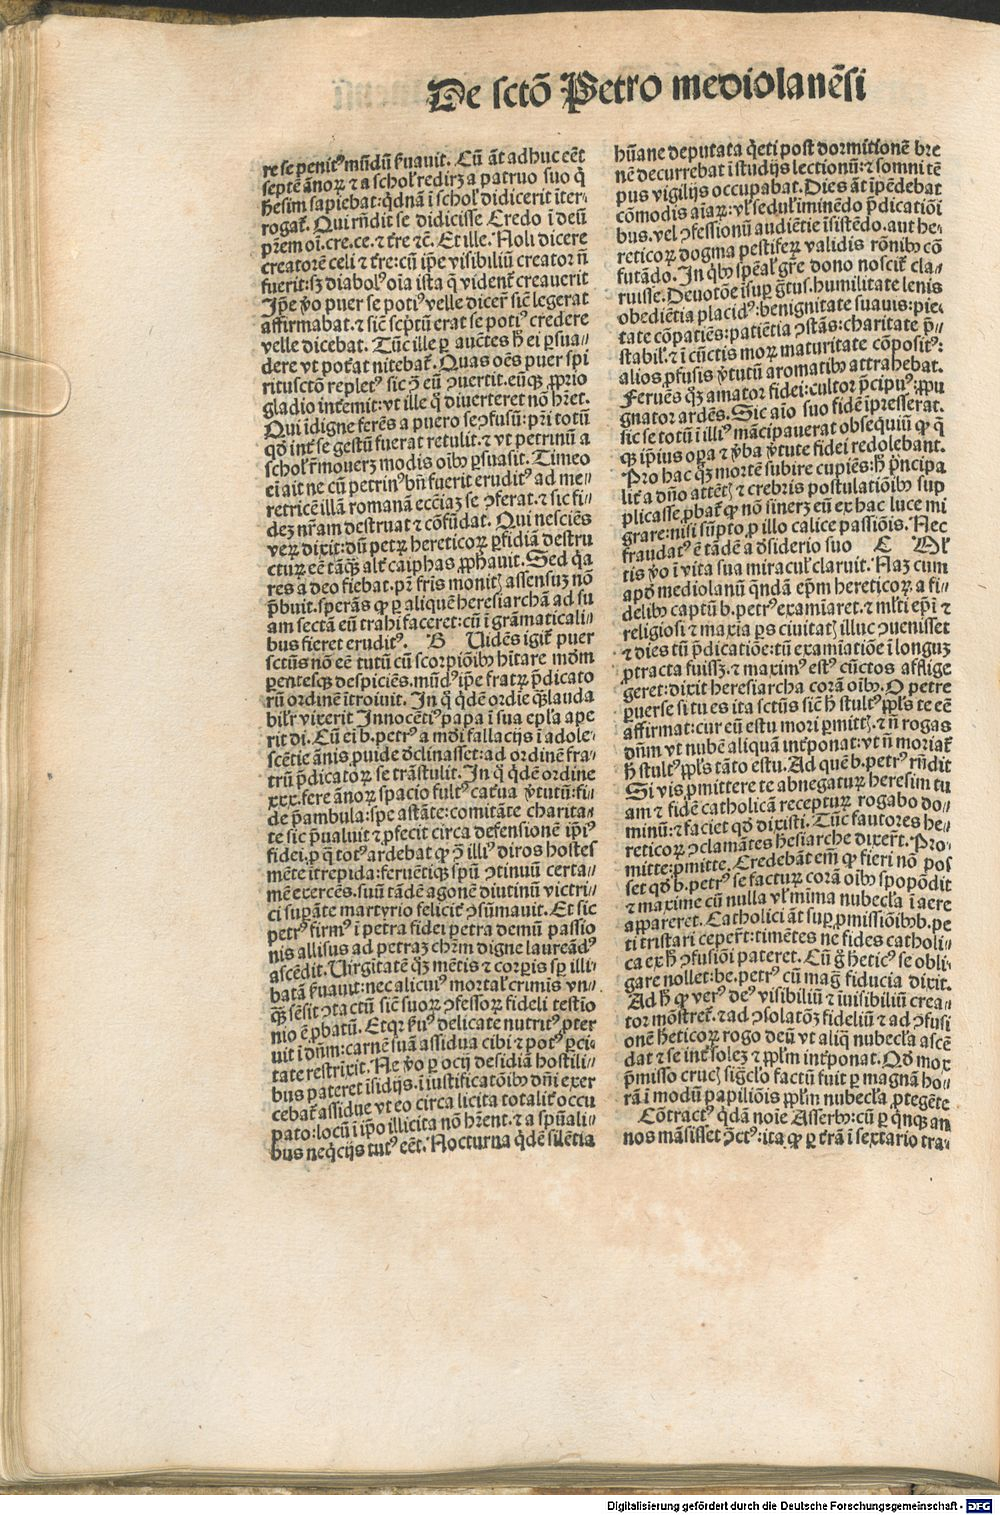 De sctō Petro mediolanēsi
re se penitꝰ mūdū ẜuauit. Cū āt adhuc eēt
septē ānoꝝ ⁊ a schol̕ redirꝫ a patruo suo q̇
h̄esim sapiebat: qd̄nā ī schol̕ didicerit īter⸗
rogat̕. Qui rn̄dit se didicisse Credo ī deū
pr̄em oī. cre. ce. ⁊ t̄re ⁊c̄. Et ille. Noli dicere
creatorē celi ⁊ t̄re: cū ip̄e visibiliū creator n̄
fuerit: sꝫ diabolꝰ oīa ista q̄ vident̕ creauerit
Ip̄e v̄o puer se potiꝰ velle dicer̄ sic̄ legerat
affirmabat. ⁊ sic̄ scp̄tū erat se potiꝰ credere
velle dicebat. Tūc ille ꝑ auc̄tes h̄ ei ꝑsua⸗
dere vt pot̄at nitebat̕. Quas oēs puer spi
ritusctō repletꝰ sic ↄ̄ eū ↄuertit. eūqꝫ ꝓprio
gladio int̄emit: vt ille q̇ diuerteret nō hr̄et.
Qui īdigne ferēs a puero se ↄfusū: pr̄i totū
qd̄ int̄ se gestū fuerat retulit. ⁊ vt petrinū a
schol̕ r̄mouerꝫ modis oībꝰ ꝑsuasit. Timeo
ei ait ne cū petrinꝰ bn̄ fuerit eruditꝰ ad me⸗
retricē illā romanā eccīaꝫ se ↄferat. ⁊ sic fi⸗
deꝫ nr̄am destruat ⁊ cōfūdat. Qui nesciēs
veꝝ dixit: dū petrꝫ hereticoꝝ ꝑfidiā destru
cturꝫ eē tāqꝫ alt̄ caiphas ꝓphauit. Sed q̇a
res a deo fiebat. pr̄ fr̄is monitꝭ assensuꝫ nō
p̄buit. sperās ꝙ ꝑ aliquē heresiarchā ad su
am sectā eū trahi faceret: cū ī grāmaticali⸗
bus fieret eruditꝰ. B Uidēs igit̕ puer
sctūs nō eē tutū cū scorpiōibꝰ hītare mōm
ꝑentesqꝫ despiciēs. mūdꝰ ip̄e fratꝝ p̄dicato
rū ordinē ītroiuit. In q̇ q̇dē ordīe qꝫ lauda
bilr̄ vixerit Innocētiꝰ papa ī sua epl̄a ape
rit di. Cū eī b. petrꝰ a mōi fallacijs ī adole⸗
scētie ānis ꝓuide d̄clinasset: ad ordinē fra⸗
trū p̄dicatoꝝ se trāstulit. In q̇ q̇dē ordine
xxx. fere ānoꝝ spacio fultꝰ cat̄ua v̄tutū: fi⸗
de p̄ambula: spe astāte: comitāte charita⸗
te sic p̄ualuit ⁊ ꝓfecit circa defensionē ip̄iꝰ
fidei. ꝓ q̄ totꝰ ardebat ꝙ ↄ̄ illiꝰ diros hostes
mēte ītrepida: feruētiqꝫ spū ↄtinuū certa⸗
mē exercēs. suū tādē agonē diutinū victri⸗
ci suꝑāte martyrio felicit̕ ↄsūmauit. Et sic
petrꝰ firmꝰ ī petra fidei petra demū passio
nis allisus ad petraꝫ chrm̄ digne laureādꝰ
ascēdit. Uirgītatē qꝫ mētis ⁊ corꝑis sp̄ illi⸗
batā ẜuauit: nec alicuiꝰ mortal̕ crimīs vn⸗
qꝫ sēsit ↄtactū sic̄ suoꝝ ↄfessoꝝ fideli testīo
nio ē ꝓbatū. Etqꝛ ẜuꝰ delicate nutritꝰ ꝓter
uit ī dn̄m: carnē suā assidua cibi ⁊ potꝰ ꝑci⸗
tate restrīxit. Ne v̄o ꝑ ocij desidiā hostili⸗
bus pateret īsidijs. ī iustificatōibꝰ dn̄i exer
cebat̕ assidue vt eo circa licita totalit̕ occu
pato: locū ī ip̄o illicita nō hr̄ent. ⁊ a spūali⸗
bus neq̇cijs tutꝰ eēt. Nocturna q̇dē silētia
hūane deputata q̇eti post dormitionē bre
nē decurrebat ī studijs lectionū: ⁊ somni tē
pus vigilijs occupabat. Dies āt īpēdebat
cōmodis aīaꝝ: vl̕ sedul̕ iminēdo p̄dicatiōi
bus. vel ↄfessionū audiētie īsistēdo. aut he⸗
reticoꝝ dogma pestifeꝝ validis rōnibꝰ cō
futādo. In q̇bꝰ spēal̕ gr̄e dono noscit̕ cla⸗
ruisse. Deuotōe īsuꝑ gr̄tus. humilitate lenis
obediētia placidꝰ: benignitate suauis: pie⸗
tate cōpatiēs: patiētia ↄstās: charitate p̄⸗
stabil̕. ⁊ ī cūctis moꝝ maturitate cōpositꝰ:
alios ꝓfusis v̄tutū aromatibꝰ attrahebat.
Feruēs qꝫ amator fidei: cultor p̄cipuꝰ: ꝓpu
gnator ardēs. Sic aīo suo fidē īpresserat.
sic se totū ī illiꝰ mācipauerat obsequiū ꝙ q̇
qꝫ ip̄ius oꝑa ⁊ v̄ba v̄tute fidei redolebant.
Pro hac qꝫ mortē subire cupiēs: h̄ p̄ncipa
lit̕ a dn̄o attētꝭ ⁊ crebris postulatiōibꝰ sup
plicasse ꝓbat̕ ꝙ nō sinerꝫ eū ex hac luce mi
grare: nisi sūpto ꝓ illo calice passiōis. Nec
fraudatꝰ ē tādē a d̄siderio suo C Ml̕
tis v̄o ī vita sua miracul̕ claruit. Naꝫ cum
apd̄ mediolanū qn̄dā ep̄m hereticoꝝ a fi⸗
delibꝰ captū b. petrꝰ examīaret. ⁊ ml̄ti ep̄i ⁊
religiosi ⁊ maxīa ꝑs ciuitatꝭ illuc ↄuenisset
⁊ dies tū p̄dicatiōe: tū examīatiōe ī longuꝫ
ꝓtracta fuissꝫ. ⁊ maximꝰ estꝰ cūctos afflige
geret: dixit heresiarcha corā oībꝰ. O petre
ꝑuerse si tu es ita sctūs sic̄ h̄ stultꝰ ppl̄s te eē
affirmat: cur eū estu mori ꝑmittꝭ. ⁊ n̄ rogas
dn̄m vt nubē aliquā int̄ponat: vt n̄ moriat̕
h̄ stultꝰ ppl̄s tāto estu. Ad quē b. petrꝰ rn̄dit
Si vis ꝓmittere te abnegaturꝫ heresim tu
am ⁊ fidē catholicā recepturꝫ rogabo do⸗
minū: ⁊ faciet qd̄ dixisti. Tūc fautores he⸗
reticoꝝ ↄclamātes h̄esiarche dixer̄t. Pro⸗
mitte: ꝓmitte. Credebāt em̄ ꝙ fieri nō pos
set qd̄ b. petrꝰ se facturꝫ corā oībꝰ spopōdit
⁊ maxime cū nulla vl̕ mīma nubecl̄a ī aere
appareret. Catholici āt suꝑ ꝓmissiōibꝰ b. pe
tri tristari ceper̄t: timētes ne fides catholi⸗
ca ex h̄ ↄfusiōi pateret. Cū g̊ h̄eticꝰ se obli⸗
gare nollet: be. petrꝰ cū maḡ fiducia dixit.
Ad h̄ ꝙ verꝰ deꝰ visibiliū ⁊ īuisibiliū crea⸗
tor mōstret̕. ⁊ ad ↄsolatōꝫ fideliū ⁊ ad ↄfusi
onē h̄eticoꝝ rogo deū vt aliq̄ nubecl̄a ascē
dat ⁊ se int̄ soleꝫ ⁊ ppl̄m int̄ponat. Qd̄ mox
p̄misso crucꝭ sigc̄lo factū fuit ꝑ magnā ho⸗
rā ī modū papiliōis ppl̄m nubecl̄a ꝓtegēte
Cōtractꝰ q̇dā noīe Asserbꝰ: cū ꝑ q̇nqꝫ an
nos māsisset ↄ̄ctꝰ: ita ꝙ ꝑ t̄rā ī sextario tra⸗
Digitalisierung gefördert durch die Deutsche Forschungsgemeinschaft - DFG